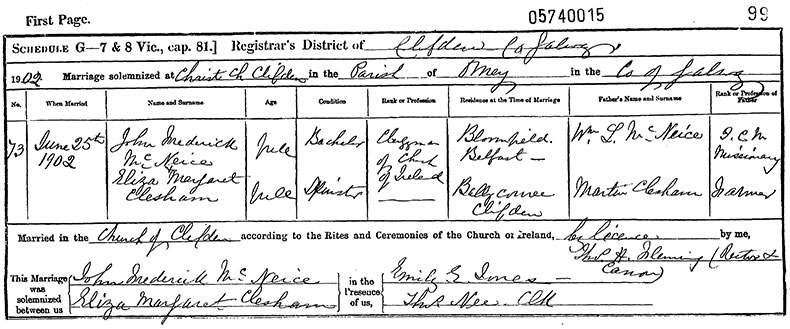 First Page. 05740015 99
SCHEDULE G—7 & 8 Vic., cap. 81.] Registrar's District of Clifden Co Galway
1902 Marriage solemnized at Christ Ch Clifden in the Parish of Omey in the Co of Galway
No. When Married Name and Surname Age Condition Rank or Profession Residence at the Time of Marriage Father's Name and Surname Rank or Profession of Father
73 June 25th 1902 John Frederick McNeice full Bachelor Clergyman of Church of Ireland Bloomfield. Belfast— Wm L. McNeice I.C.M Missionary
Eliza Margaret Clesham full Spinster Ballyconree Clifden Martin Clesham Farmer
Married in the Church of Clifden according to the Rites and Ceremonies of the Church of Ireland, by licence by me,
Thos H. Fleming (Rector & Canon)
This Marriage was solemnized between us
John Frederick McNeice
Eliza Margaret Clesham
in the Presence of us,
Emily G. Jones —
Thos Nee